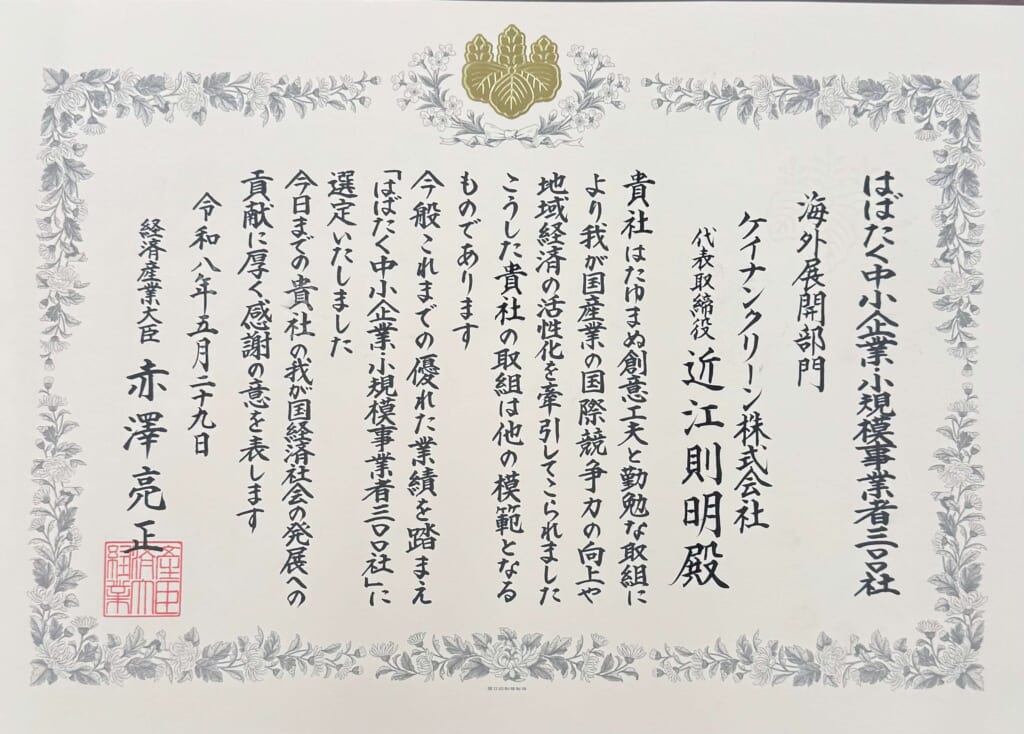 はばたく中小企業・小規模事業者三〇〇社
海外展開部門
ケイナンクリーン株式会社
代表取締役 近江則明殿
貴社はたゆまぬ創意工夫と勤勉な取組に
より我が国産業の国際競争力の向上や
地域経済の活性化を牽引してこられました
こうした貴社の取組は他の模範となる
ものであります
今般これまでの優れた業績を踏まえ
「はばたく中小企業・小規模事業者三〇〇社」に
選定いたしました
今日までの貴社の我が国経済社会の発展への
貢献に厚く感謝の意を表します
令和八年五月二十九日
経済産業大臣 赤澤亮正